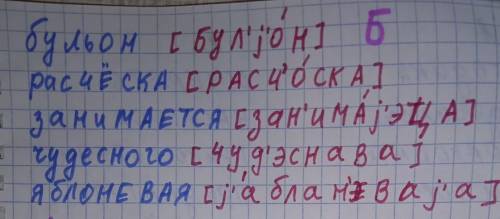 бульон [бул'j'óн] Б
расчёска [расч'óска]
занимается [зан'имáj'эца]
чудесного [чуд'эснава]
яблоневая [j'áблан'эваj'а]